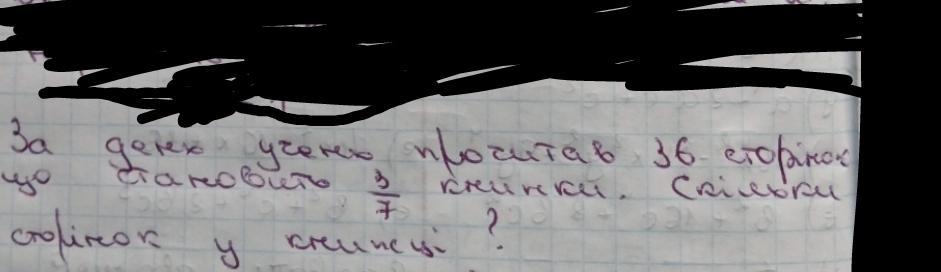 За день учень прочитав 36 сторінок
що становить 3/7 книжки. Скільки
сторінок у книжці ?